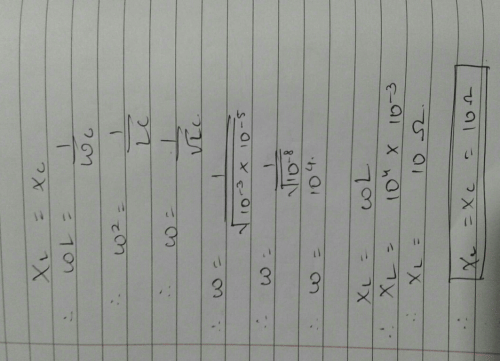 X_L = X_C
∴ ωL = 1/ωC
∴ ω² = 1/LC
∴ ω = 1/√LC
∴ ω = 1/√(10⁻³ × 10⁻⁵)
∴ ω = 1/√10⁻⁸
∴ ω = 10⁴.
X_L = ωL
∴ X_L = 10⁴ × 10⁻³
∴ X_L = 10 Ω.
∴ X_L = X_C = 10 Ω